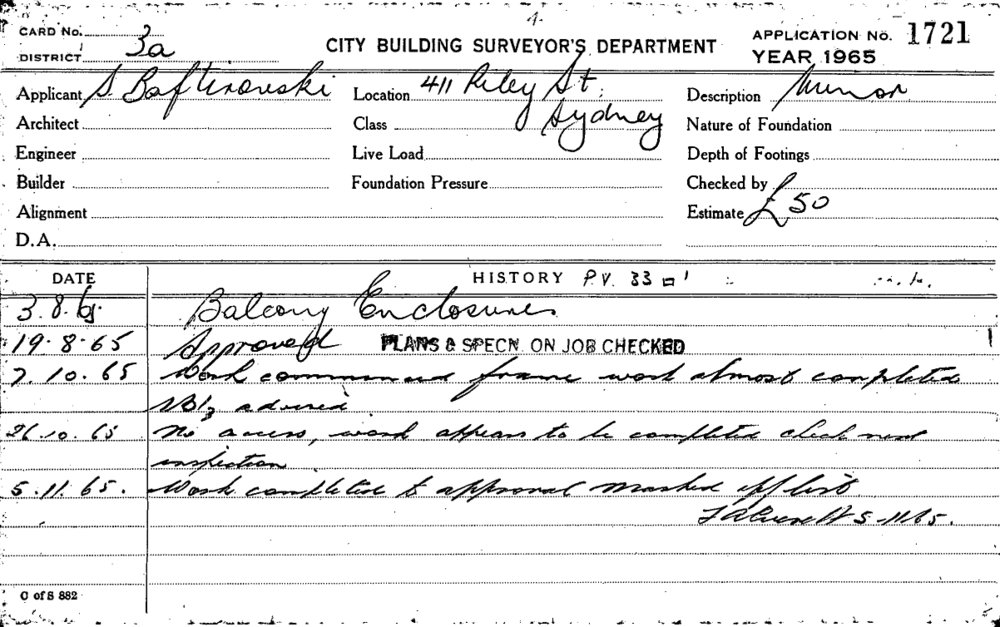 CARD No. 3a
DISTRICT
CITY BUILDING SURVEYOR'S DEPARTMENT
APPLICATION No. 1721
YEAR 1965
Applicant S. Baftirovski
Location 411 Riley St, Sydney
Description Minor
Architect
Class
Nature of Foundation
Engineer
Live Load
Depth of Footings
Builder
Foundation Pressure
Checked by
Alignment
Estimate £50
D.A.
DATE
HISTORY P.V. 33 □'
3.8.65. Balcony Enclosures
19.8.65 Approved PLANS & SPECN. ON JOB CHECKED
7.10.65 Work commenced frame work almost completed
advised
26.10.65 No access, work appears to be completed check next
inspection
5.11.65. Work completed to approval marked off list
5-11-65.
C of S 882